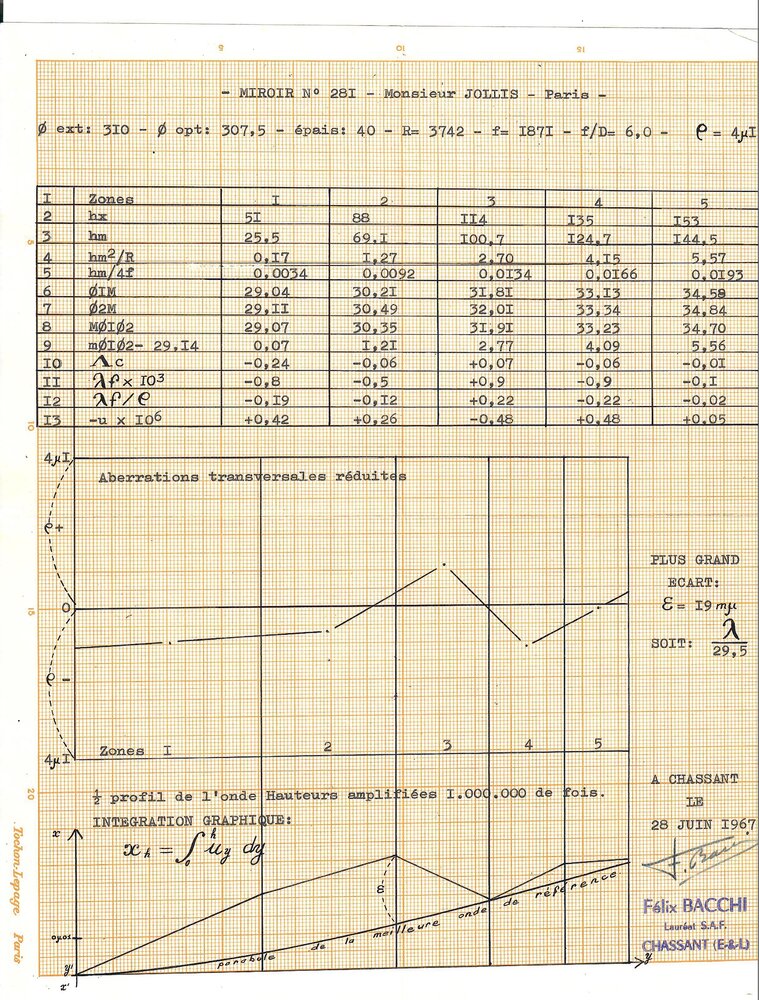 5 10 15
- MIROIR N° 28I - Monsieur JOLLIS - Paris -
Ø ext: 3I0 - Ø opt: 307,5 - épais: 40 - R= 3742 - f= I87I - f/D= 6,0 - ϱ = 4µI
I Zones I 2 3 4 5
2 hx 5I 88 II4 I35 I53
3 hm 25.5 69.I I00,7 I24,7 I44,5
4 hm²/R 0,I7 I,27 2,70 4,I5 5,57
5 hm/4f 0,0034 0,0092 0,0I34 0,0I66 0,0I93
6 ØIM 29.04 30,2I 3I,8I 33.I3 34,58
7 Ø2M 29,II 30,49 32,0I 33,34 34,84
8 MØIØ2 29,07 30,35 3I,9I 33,23 34,70
9 mØIØ2- 29.I4 0,07 I,2I 2,77 4,09 5,56
I0 Λc -0,24 -0,06 +0,07 -0,06 -0,0I
II λf × I0³ -0,8 -0,5 +0,9 -0,9 -0,I
I2 λf/ϱ -0,I9 -0,I2 +0,22 -0,22 -0,02
I3 -u x I0⁶ +0,42 +0,26 -0,48 +0,48 +0,05
5
10
15
20
4µI
Aberrations transversales réduites
ϱ+
0
ϱ -
4µI
Zones I 2 3 4 5
PLUS GRAND
ECART:
ε = I9 mµ
SOIT: λ
29,5
½ profil de l'onde Hauteurs amplifiées I.000.000 de fois.
INTEGRATION GRAPHIQUE:
x h = ∫ h 0 u y dy
x
ε
0µ01
y'
x'
y
parabole de la meilleure onde de référence
A CHASSANT
LE
28 JUIN I967
F. Bacchi
Félix BACCHI
Lauréat S.A.F.
CHASSANT (E-&-L)
Tochon-Lepage Paris